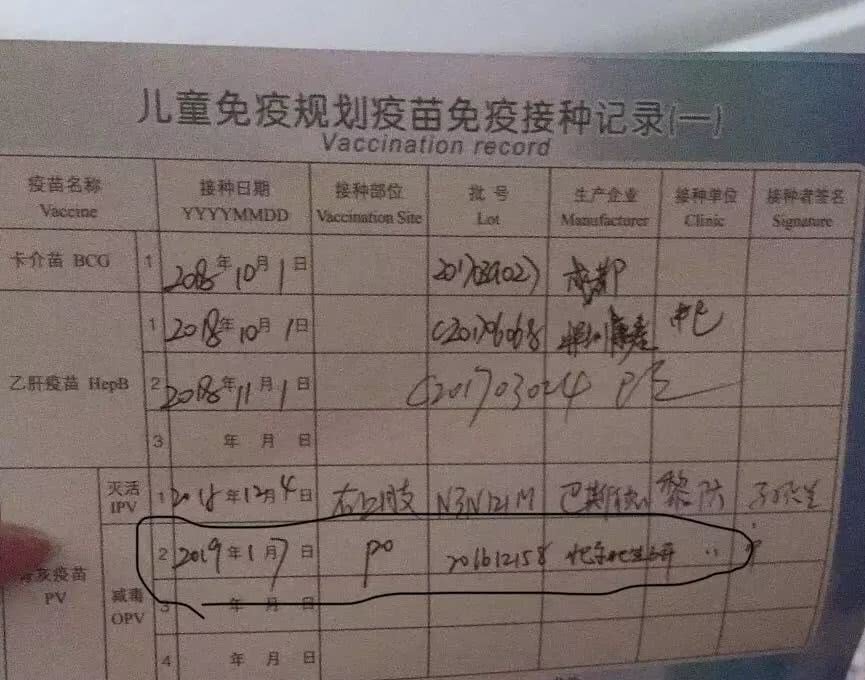 儿童免疫规划疫苗免疫接种记录(一)
Vaccination record
疫苗名称 接种日期 接种部位 批号 生产企业 接种单位 接种者签名
Vaccine YYYYMMDD Vaccination Site Lot Manufacturer Clinic Signature
卡介苗 BCG 1 2018年10月1日 成都
乙肝疫苗 HepB
1 2018年10月1日 C201706068
2 2018年11月1日 C201703024
3 年 月 日
灰疫苗 PV
灭活 IPV
1 2018年12月4日 右上肢 N3N121M 巴斯德 黎
减毒 OPV
2 2019年1月7日 po 201612158 〃
3 年 月 日
4 年 月 日